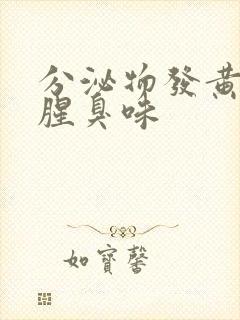 分泌物發黃
腥臭味
如寶馨